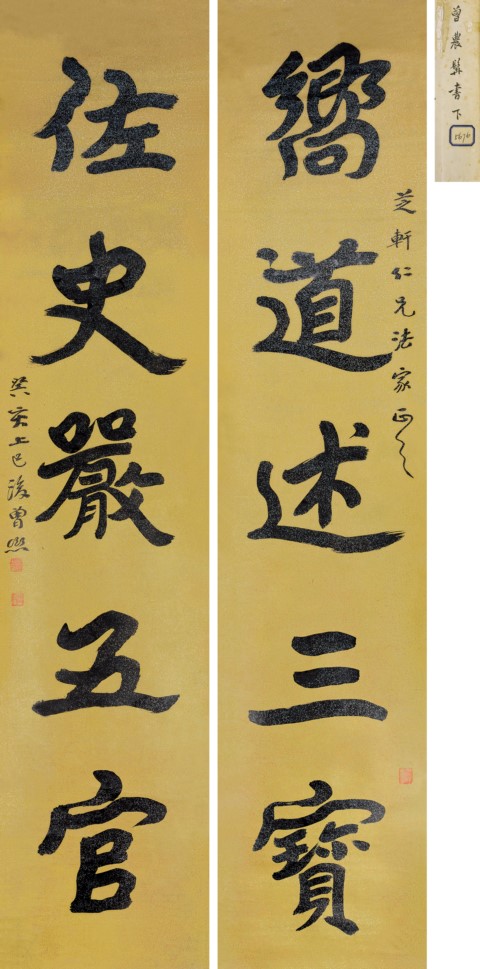 曾農髯書下
芝軒仁兄法家正之
嚮道述三寶
佐史嚴五官
癸亥上巳後曾熙